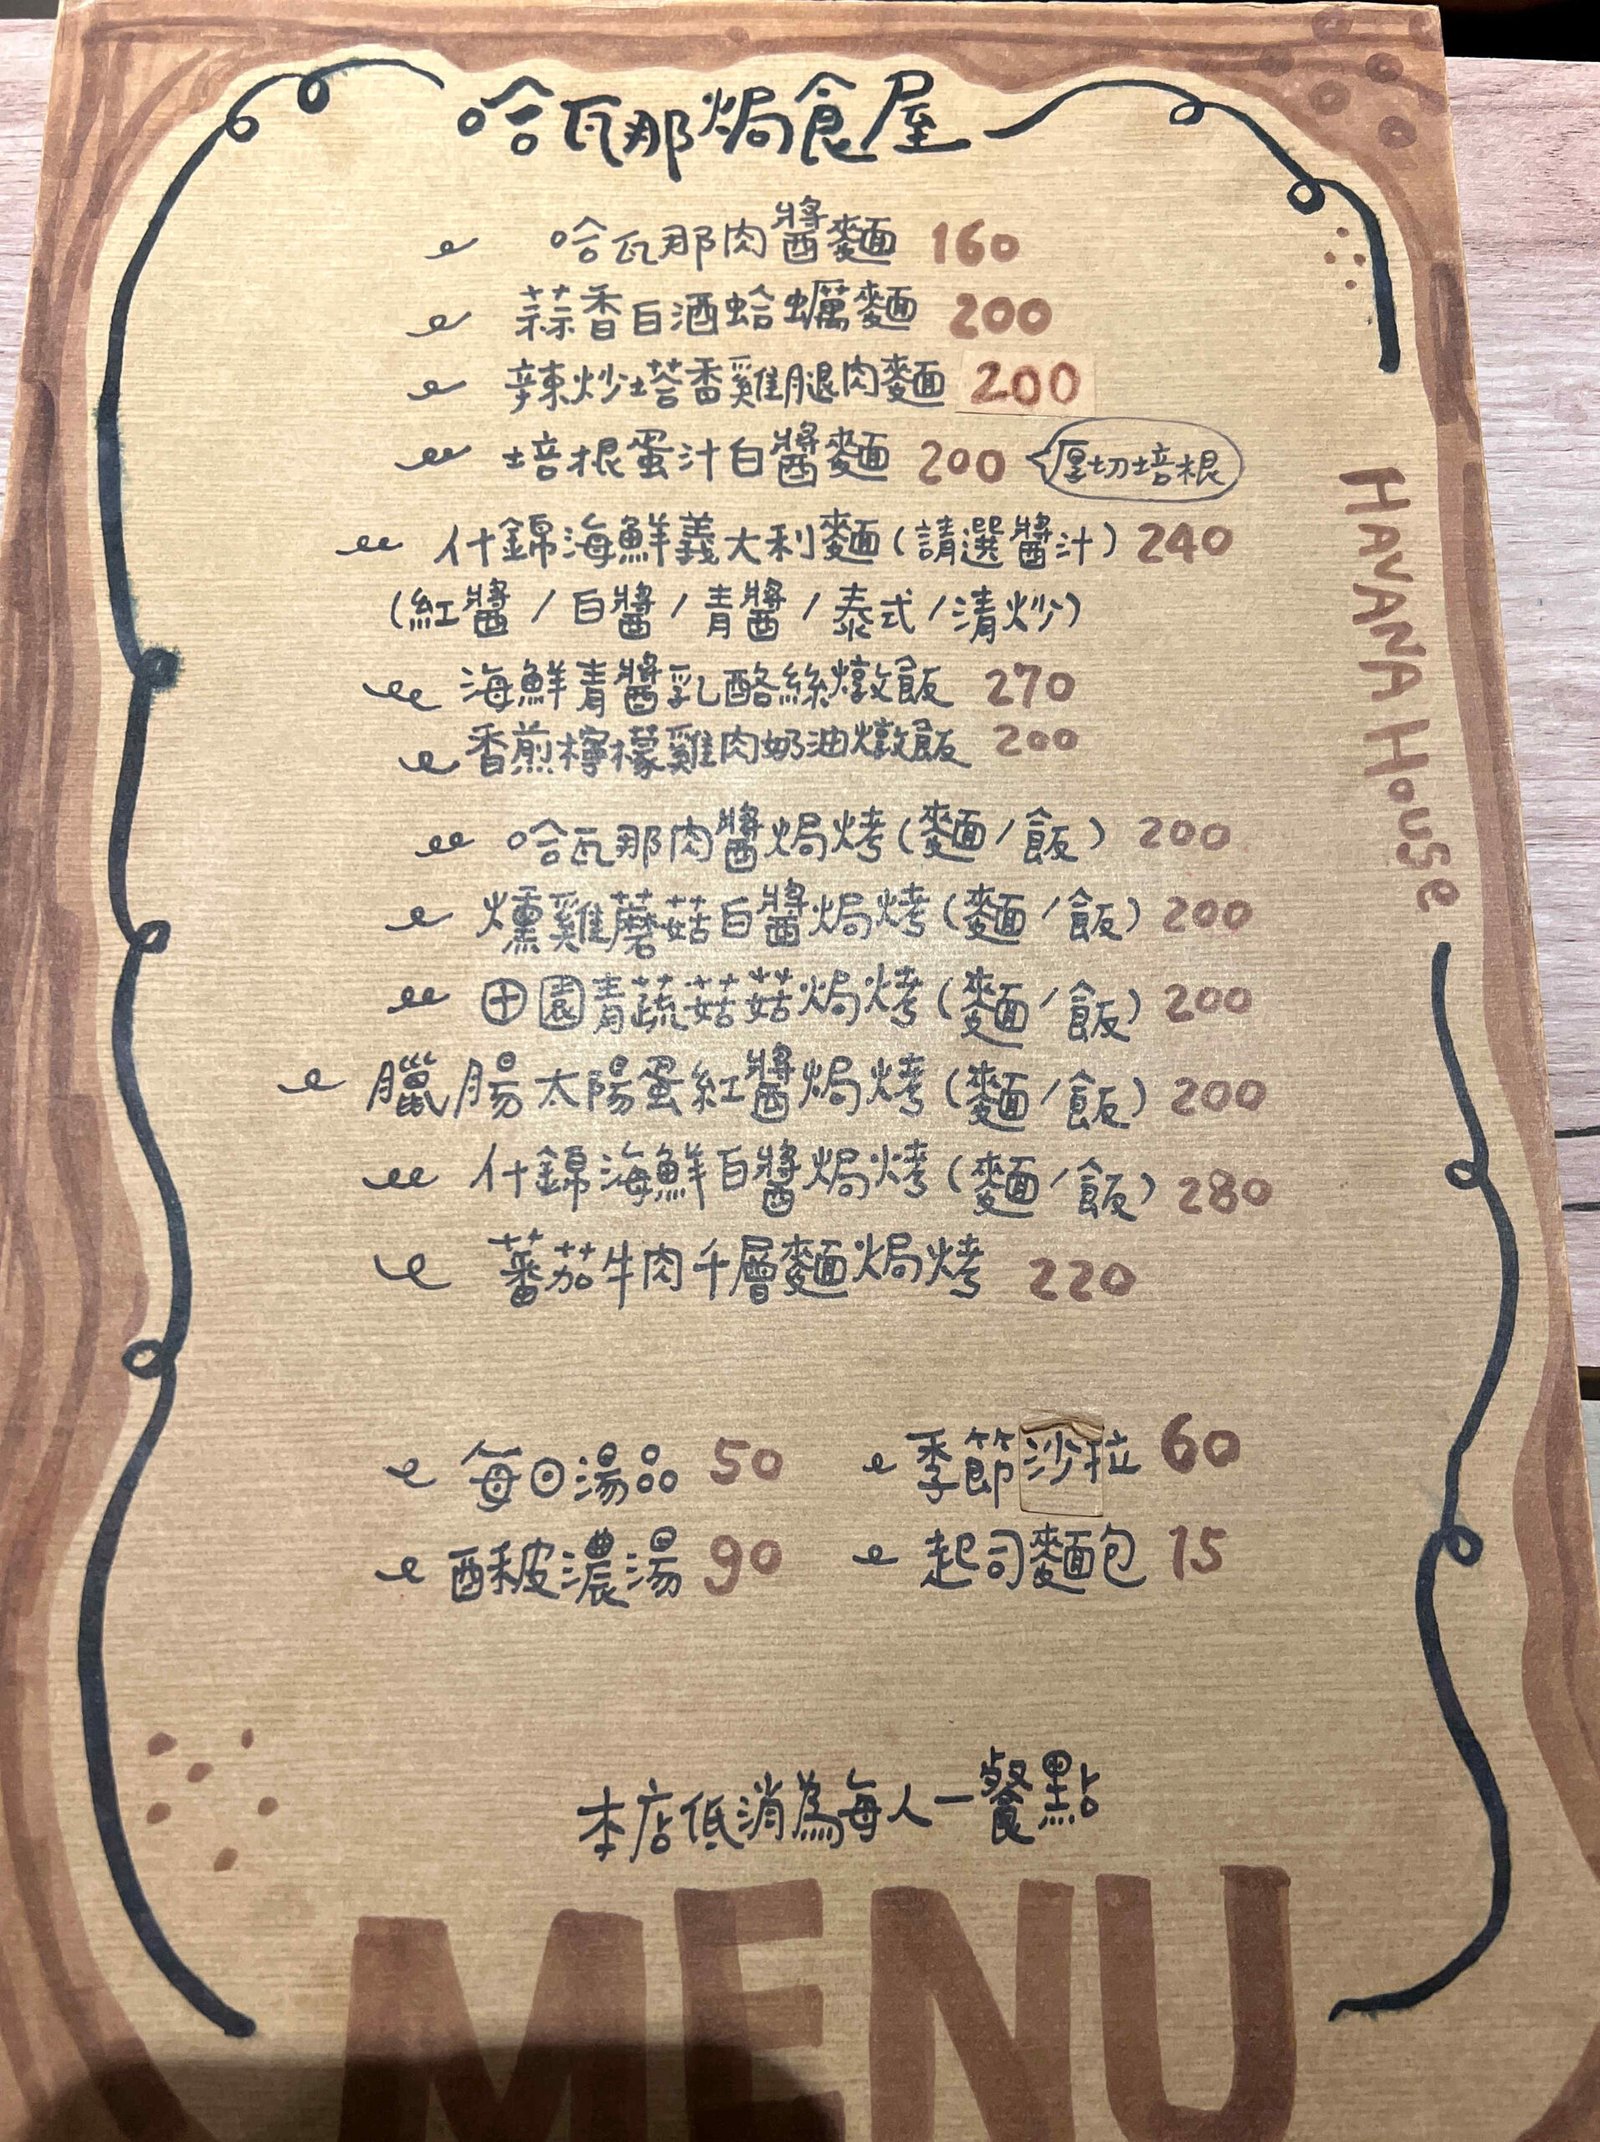 哈瓦那焗食屋
哈瓦那肉醬麵 160
蒜香白酒蛤蠣麵 200
辣炒塔香雞腿肉麵 200
培根蛋汁白醬麵 200 厚切培根
什錦海鮮義大利麵(請選醬汁) 240
(紅醬/白醬/青醬/泰式/清炒)
海鮮青醬乳酪絲燉飯 270
香煎檸檬雞肉奶油燉飯 200
哈瓦那肉醬焗烤(麵/飯) 200
燻雞蘑菇白醬焗烤(麵/飯) 200
田園青蔬菇菇焗烤(麵/飯) 200
臘腸太陽蛋紅醬焗烤(麵/飯) 200
什錦海鮮白醬焗烤(麵/飯) 280
蕃茄牛肉千層麵焗烤 220
每日湯品 50 季節沙拉 60
酥皮濃湯 90 起司麵包 15
本店低消為每人一餐點
MENU
HAVANA House